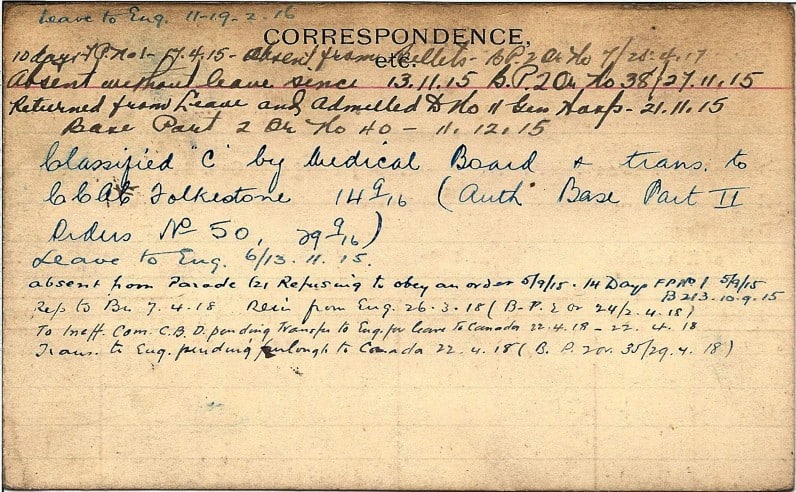 Leave to Eng. 11-19-2-16
CORRESPONDENCE,
etc.
10 days F.P. No 1 - 17.4.15 - absent from billets - B.P. 2 Or No 7/20.4.17
Absent without leave since 13.11.15 B.P. 2 Or No 38/27.11.15
Returned from Leave and Admitted to No 11 Gen Hosp - 21.11.15
Base Part 2 Or No 40 - 11.12.15
Classified "C" by Medical Board & trans. to
CCAC Folkestone 14 9/16 (Auth Base Part II
Orders No 50, 29 9/16)
Leave to Eng. 6/13.11.15.
absent from Parade (2) Refusing to obey an order 5/9/15. 14 Days FP No 1 5/9/15
B 213. 10.9.15
Rep to Bn 7.4.18 Rein from Eng. 26.3.18 (B.P. 2 or 24/2.4.18)
To Ineff. Com. C.B.D. pending transfer to Eng. for leave to Canada 22.4.18 - 22.4.18
Trans. to Eng. pending furlough to Canada 22.4.18 (B.P. 2 or. 35/29.4.18)